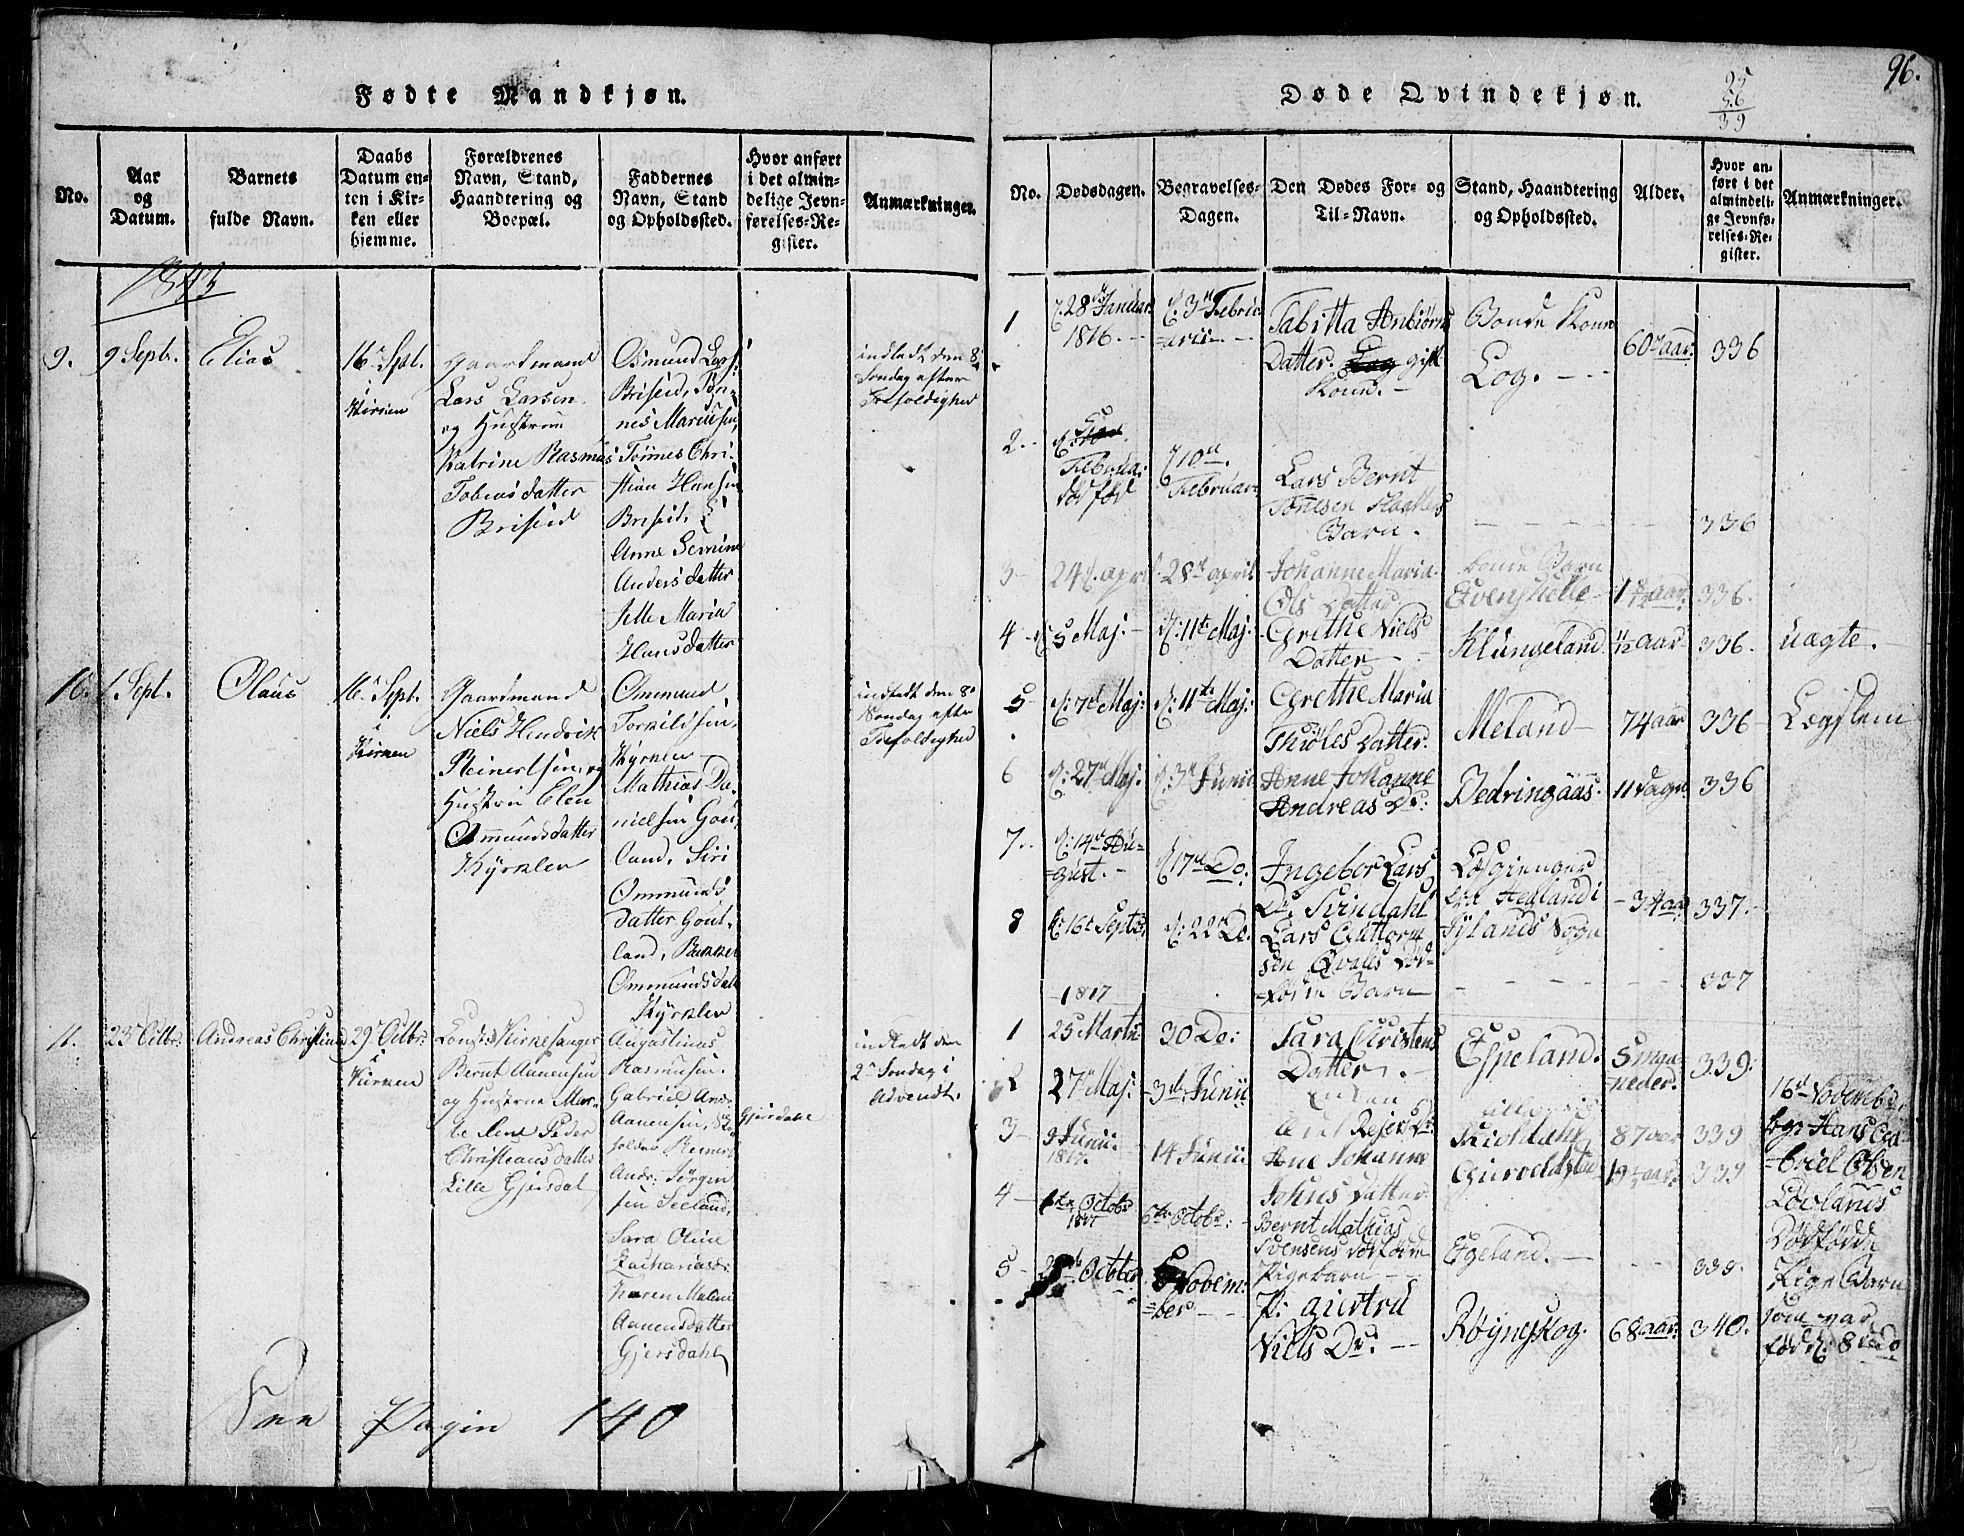 Fødte Mandkjøn.
No.
Aar
og
Datum.
Barnets
fulde Navn.
Daabs
Datum en-
ten i Kir-
ken eller
hjemme.
Forældrenes
Navn, Stand,
Haandtering og
Boepæl.
Faddernes
Navn, Stand
og Opholdssted.
Hvor anført
i det almin-
delige Jevn-
førelses-Re-
gister.
Anmærkninger.
1843
9.
9 Septr.
Elias
16 Sept.
i
Kirken
Gaardmand
Lars Larsen
og Hustrue
Katrine Rasmus
Tobiasdatter
Briseid
Osmund Lars:
Briseid, Tøn-
nes Mariussen,
Tønnes Chri-
stian Hansen
Briseid,
Anne Semine
Andersdatter
Jelle Maria
Hansdatter
indledt den 8
Søndag efter
Trefoldighed
10.
1 Sept.
Olaus
16 Sept.
i
Kirken
Gaardmand
Niels Hendrik
Reinertsen, og
Hustrue Elen
Ommundsdatter
Kyrklev
Ommund
Torkildsen,
Kyrklev
Mathias Da-
nielsen Gou-
land, Siri
Ommunds
datter Goul-
land,
Ommundsdatt
Kyrklev
indledt den 8
Søndag efter
Trefoldighed
11.
23 Octbr.
Andreas Christian
29 Octbr.
i
Kirken
Kirkesanger
Bernt Aanensen
og Hustrue Mar-
the Lene Peder
Christiansdatter
Lille Gjersdal
Augustinus
Rasmussen.
Gabriel Andr.
Aanensen,
Reinert
Andr: Jørgen
sen Seeland,
Sara Oline
Zachariasdr:
Karen Malene
Aanensdatter
Gjersdahl
Gjersdahl
indledt den
2 Søndag i
Advendt.
See Pagin 140
96.
25
56
39
Døde Qvindekjøn.
No.
Dødsdagen.
Begravelses-
Dagen.
Den Dødes For- og
Til-Navn.
Stand, Haandtering
og Opholdssted.
Alder.
Hvor an-
ført i det
almindeli-
ge Jevnfø-
relses-Re-
gister.
Anmærkninger.
1
d. 28 Januar
1816.
d: 3 Februa-
=arii
Tabitta Anbiørns
Datter. gift
Kone.
Bonde Kone
Log.
60 aar.
336
2.
6
Februar
død fød
d 10de
Februar
Lars Bernt
Tønesen
Barn.
336
3
24 d. april
d. 28 april
Johanne Maria
Ols Datter
Barn
Evenskelle
1 aar.
336.
4
d 5 Maj:
d: 11te Maj:
Grethe Niels
Datter
Klungeland
11/12 aar
336.
uagte.
5
d: 7de Maj:
d: 11te Maj:
Grethe Maria
Thiøles Datter.
Meland
74 aar
336
Løgslem
6
d: 27de Maj:
d: 3de Junii
Anne Johanne
Andreas Dr:
Bedringaas.
11 dage
336
7.
d: 14de Au-
=gust.
d 17de Do.
Ingebor Lars
Dr. Svindahl
Løsgienger
Hedland i
Fylands Sogn
34 aar
337.
8
d: 16de Septbr.
d: 22de Do.
Lars Guttorm
sen Qvalls død-
=fødte Barn
337
1817
1
25 Martii
30 Do:
Sara Christens
Datter.
Espeland.
5 maa-
neder.
339.
2
27de Maj:
3de Junii
Enken
Rejers Dr.
Kioldahl
87 aar
339
16de Novembr.
begr Hans Ga-
=briel Olsen
Løvlands
Dødfødte
Pige Barn
som var
fød d. 8de do
3
9 Junii
1817.
14 Junii.
Ane Johanne
Johns Datter
Giervoldstad
19 aar
339
4
1te Octobr
1817
6te Octobr:
Bernt Mathias
Svensens dødfødte
Pigebarn
Egeland.
339.
5
Octber
Novem-
=ber
P: Giertru
Niels Dr.
Røyneskog.
68 aar.
340.